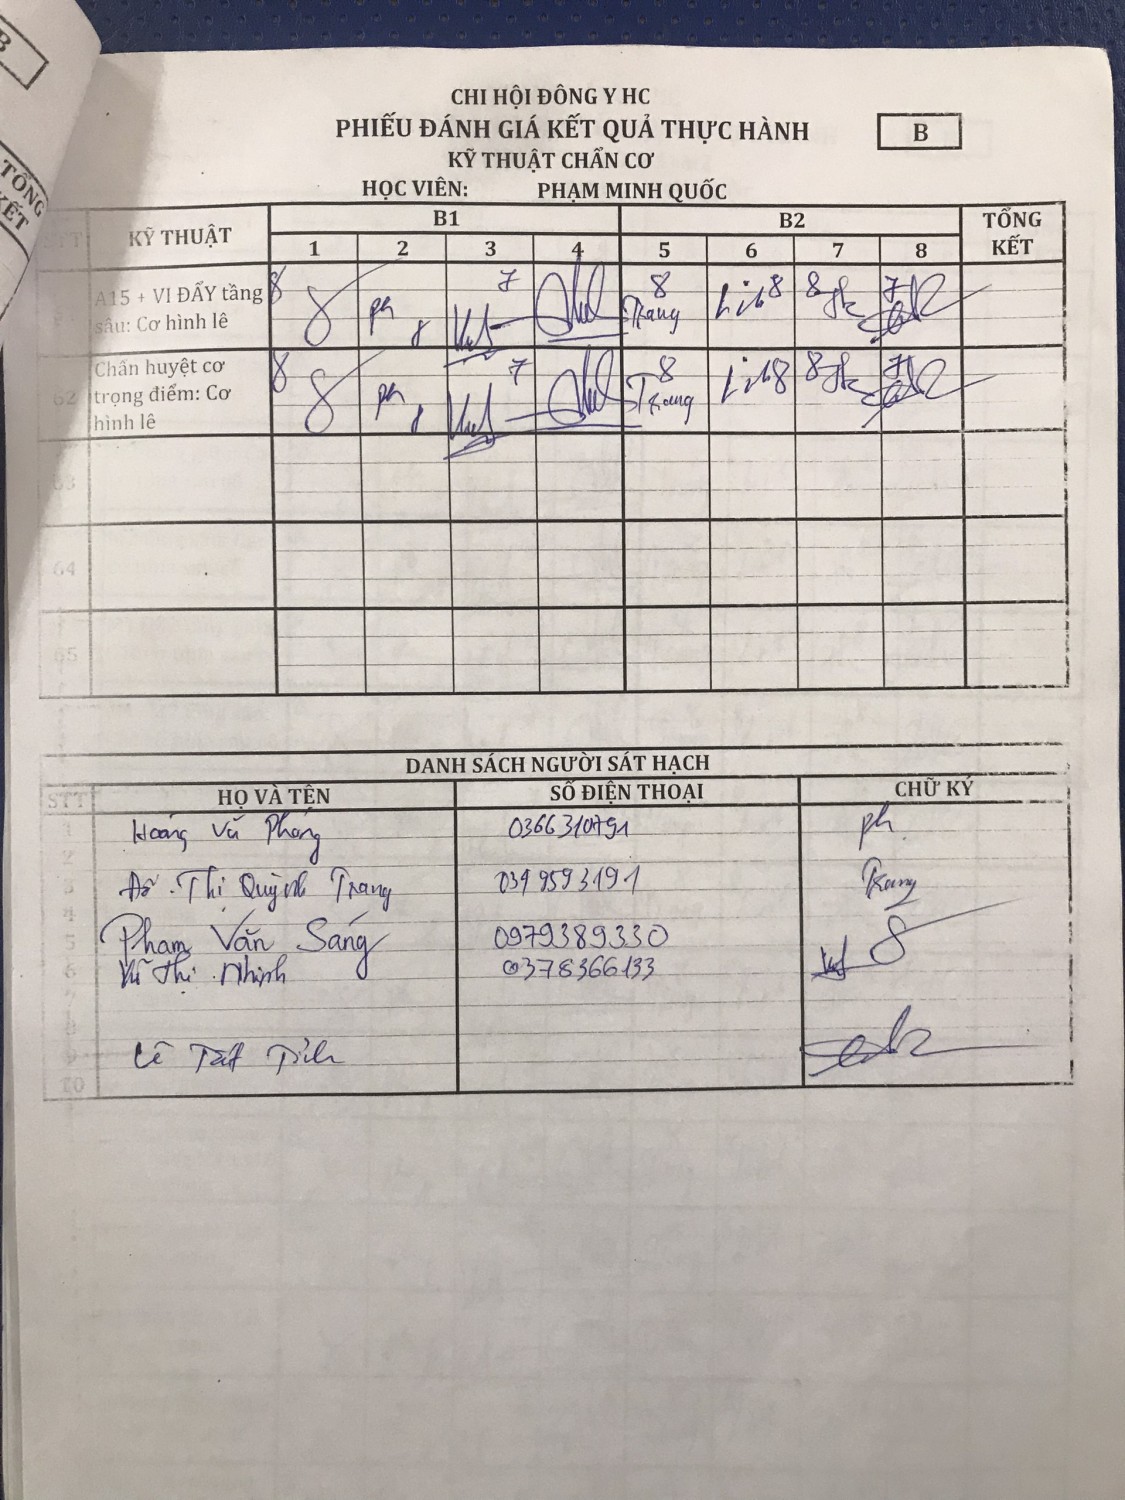 B
TỔNG
KẾT
CHI HỘI ĐÔNG Y HC
PHIẾU ĐÁNH GIÁ KẾT QUẢ THỰC HÀNH
B
KỸ THUẬT CHẨN CƠ
HỌC VIÊN: PHẠM MINH QUỐC
STT KỸ THUẬT B1 B2 TỔNG KẾT
1 2 3 4 5 6 7 8
A15 + VI ĐẨY tầng sâu: Cơ hình lê
8 ph 8 7 8 Trang 8 8 7
62 Chẩn huyệt cơ trọng điểm: Cơ hình lê
8 ph 8 7 8 Trang 8 8 7
63
64
65
DANH SÁCH NGƯỜI SÁT HẠCH
STT HỌ VÀ TÊN SỐ ĐIỆN THOẠI CHỮ KÝ
1 Hoàng Vũ Phóng 0366310791 ph
2
3 Đỗ Thị Quỳnh Trang 0349593191 Trang
4
5 Phạm Văn Sáng 0979389330
6 Vũ Thị Nhịnh 0378366133
7
8
9 Lê Tất Tỉnh
10